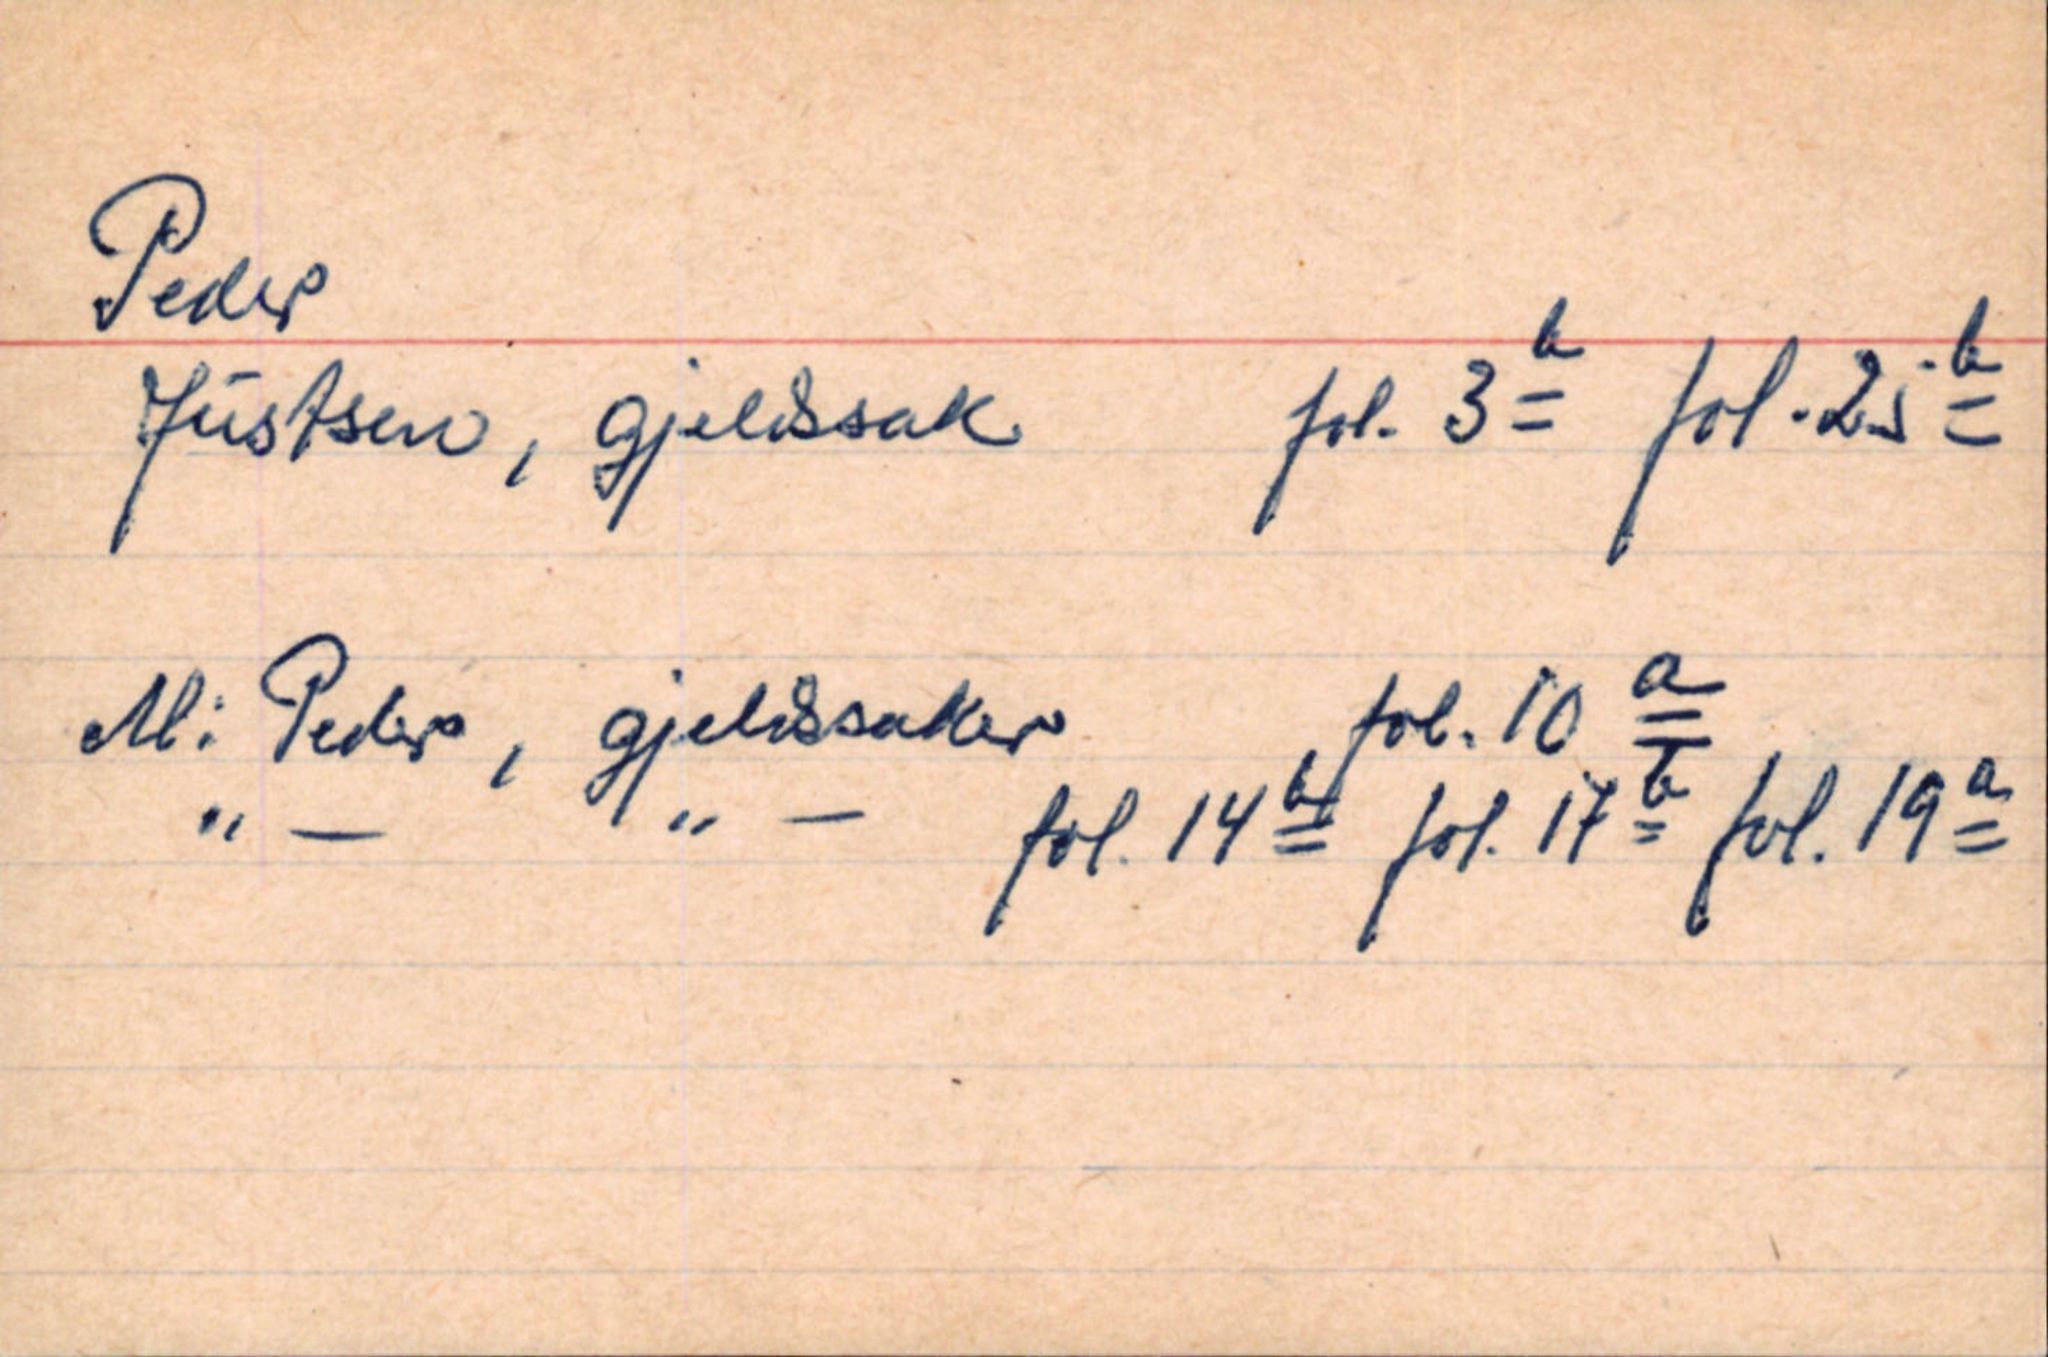 Peder
Jüstsen, gjeldssak fol. 3b fol. 25b
M: Peder, gjeldssaker fol. 10a
" — " — fol. 14b fol. 17b fol. 19a